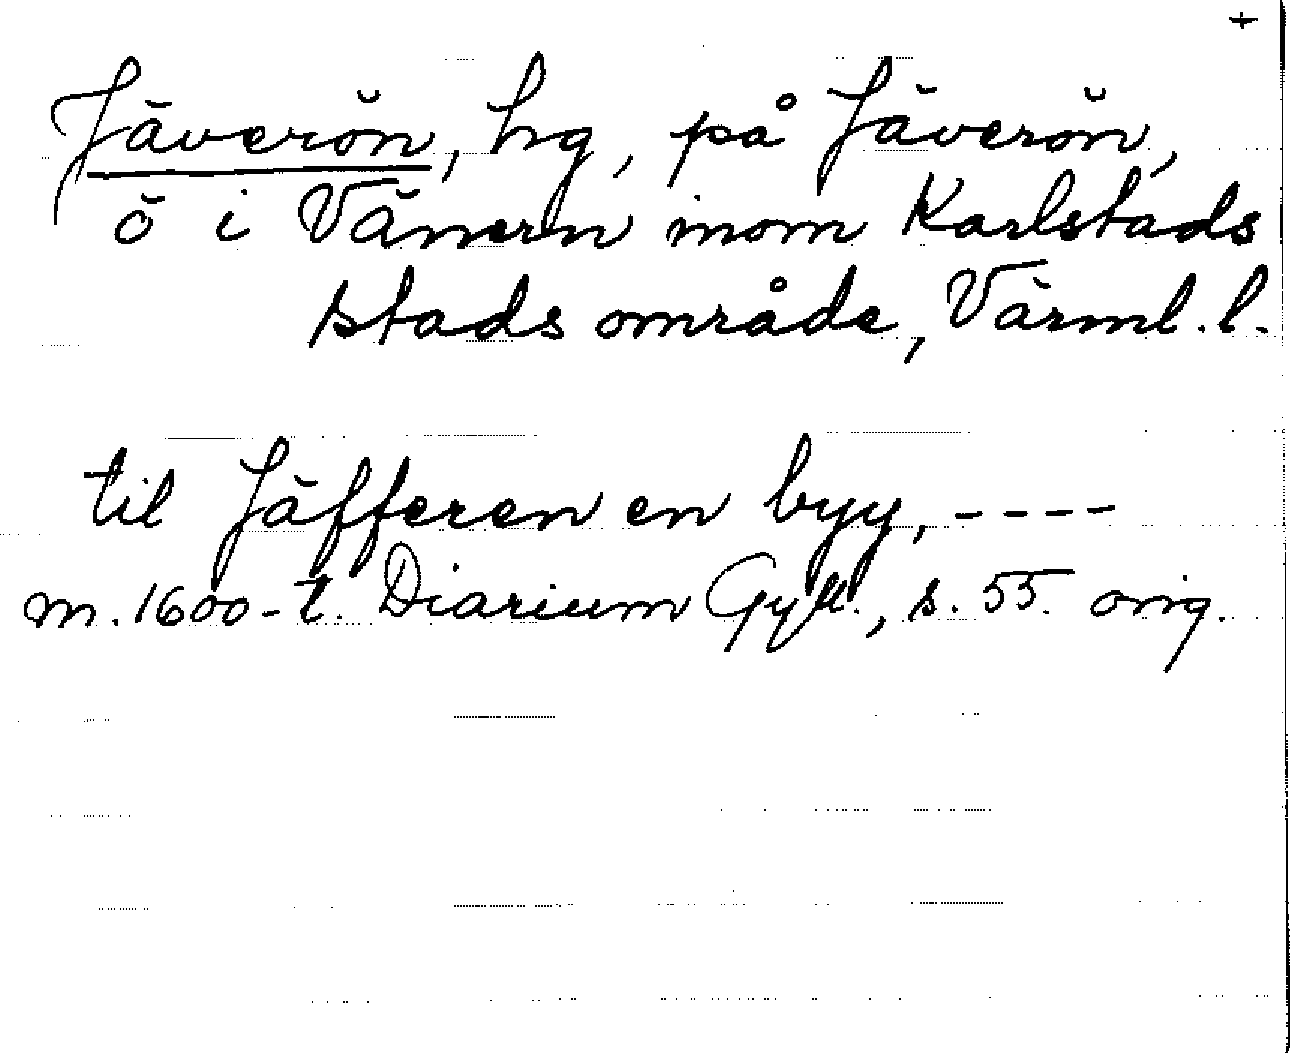 +
Jäverön, hg, på Jäverön,
ö i Vänern inom Karlstads
stads område, Värml. l.
til Jäfferen en byy, ----
m. 1600-t. Diarium Gyll., s. 55. orig.